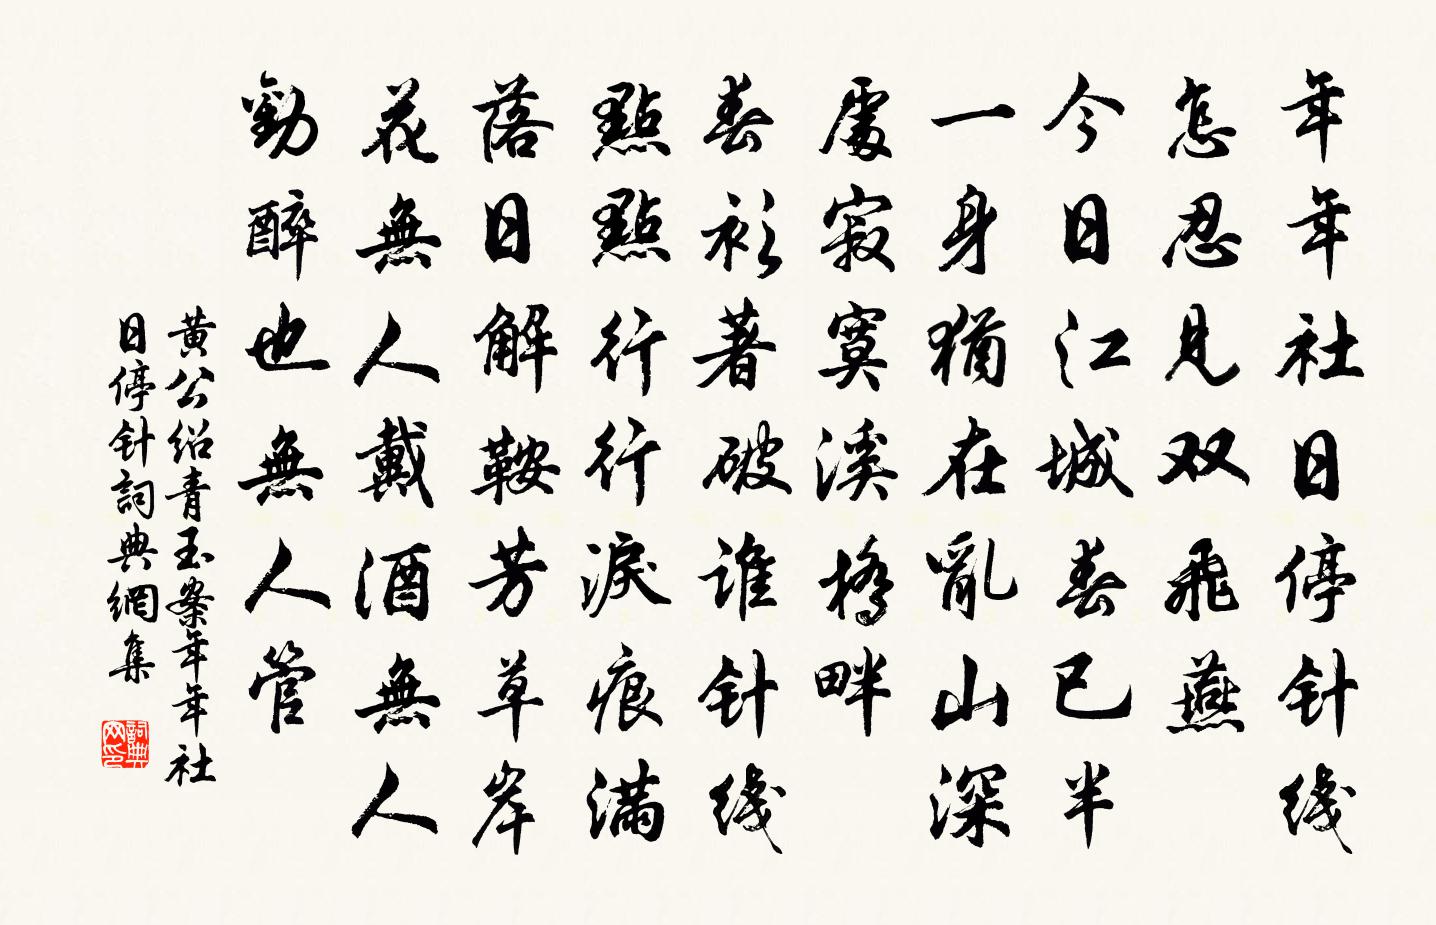 年年社日停针线
怎忍見双飛燕
今日江城春已半
一身猶在亂山深
處寂寞溪橋畔
春衫著破谁针线
點點行行淚痕满
落日解鞍芳草岸
花無人戴酒無人
勸醉也無人管
黄公绍青玉案年年社
日停针詞典網集
詞典网印